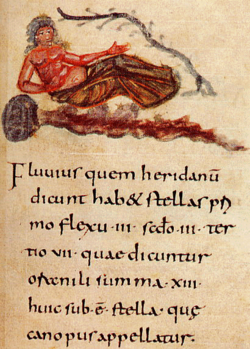 Fluuius quem heridanū
dicunt hab& stellas p
mo flexu·iii·secḋo·iii·ter
tio vii· quae dicuntur
omnes summa·xiii·
huic sub·ē·stella·quę
canopus appellatur·